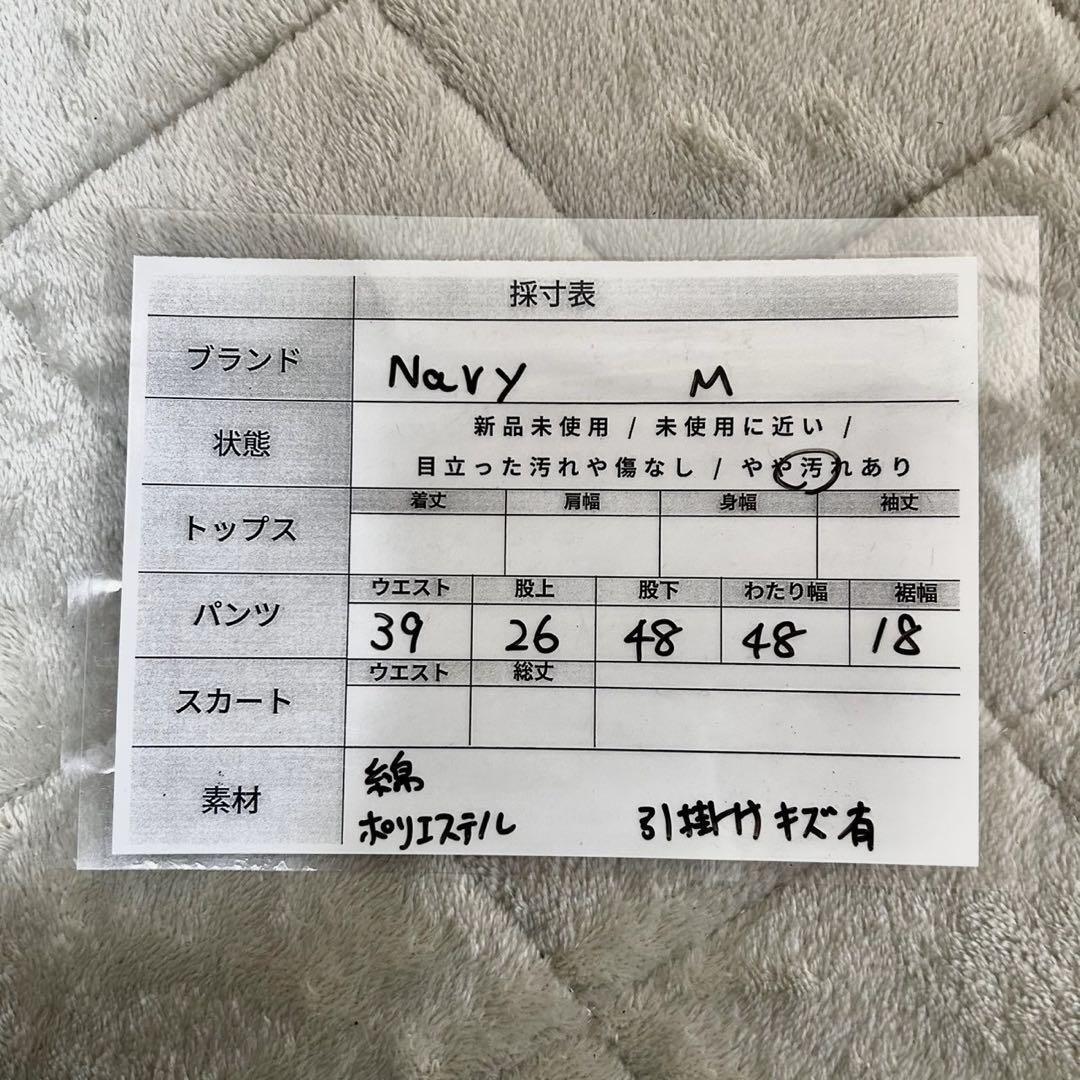 採寸表
ブランド Navy M
状態 新品未使用 / 未使用に近い /
目立った汚れや傷なし / やや汚れあり
トップス 着丈 肩幅 身幅 袖丈
パンツ ウエスト 股上 股下 わたり幅 裾幅
39 26 48 48 18
スカート ウエスト 総丈
素材 綿
ポリエステル 引掛けキズ有